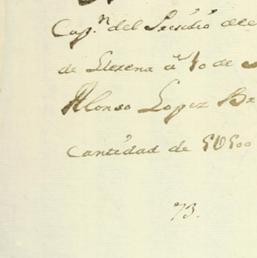 Cap.n del Presidio del
de Llerena a 10 de
Alonso Lopez
Cantidad de
73.